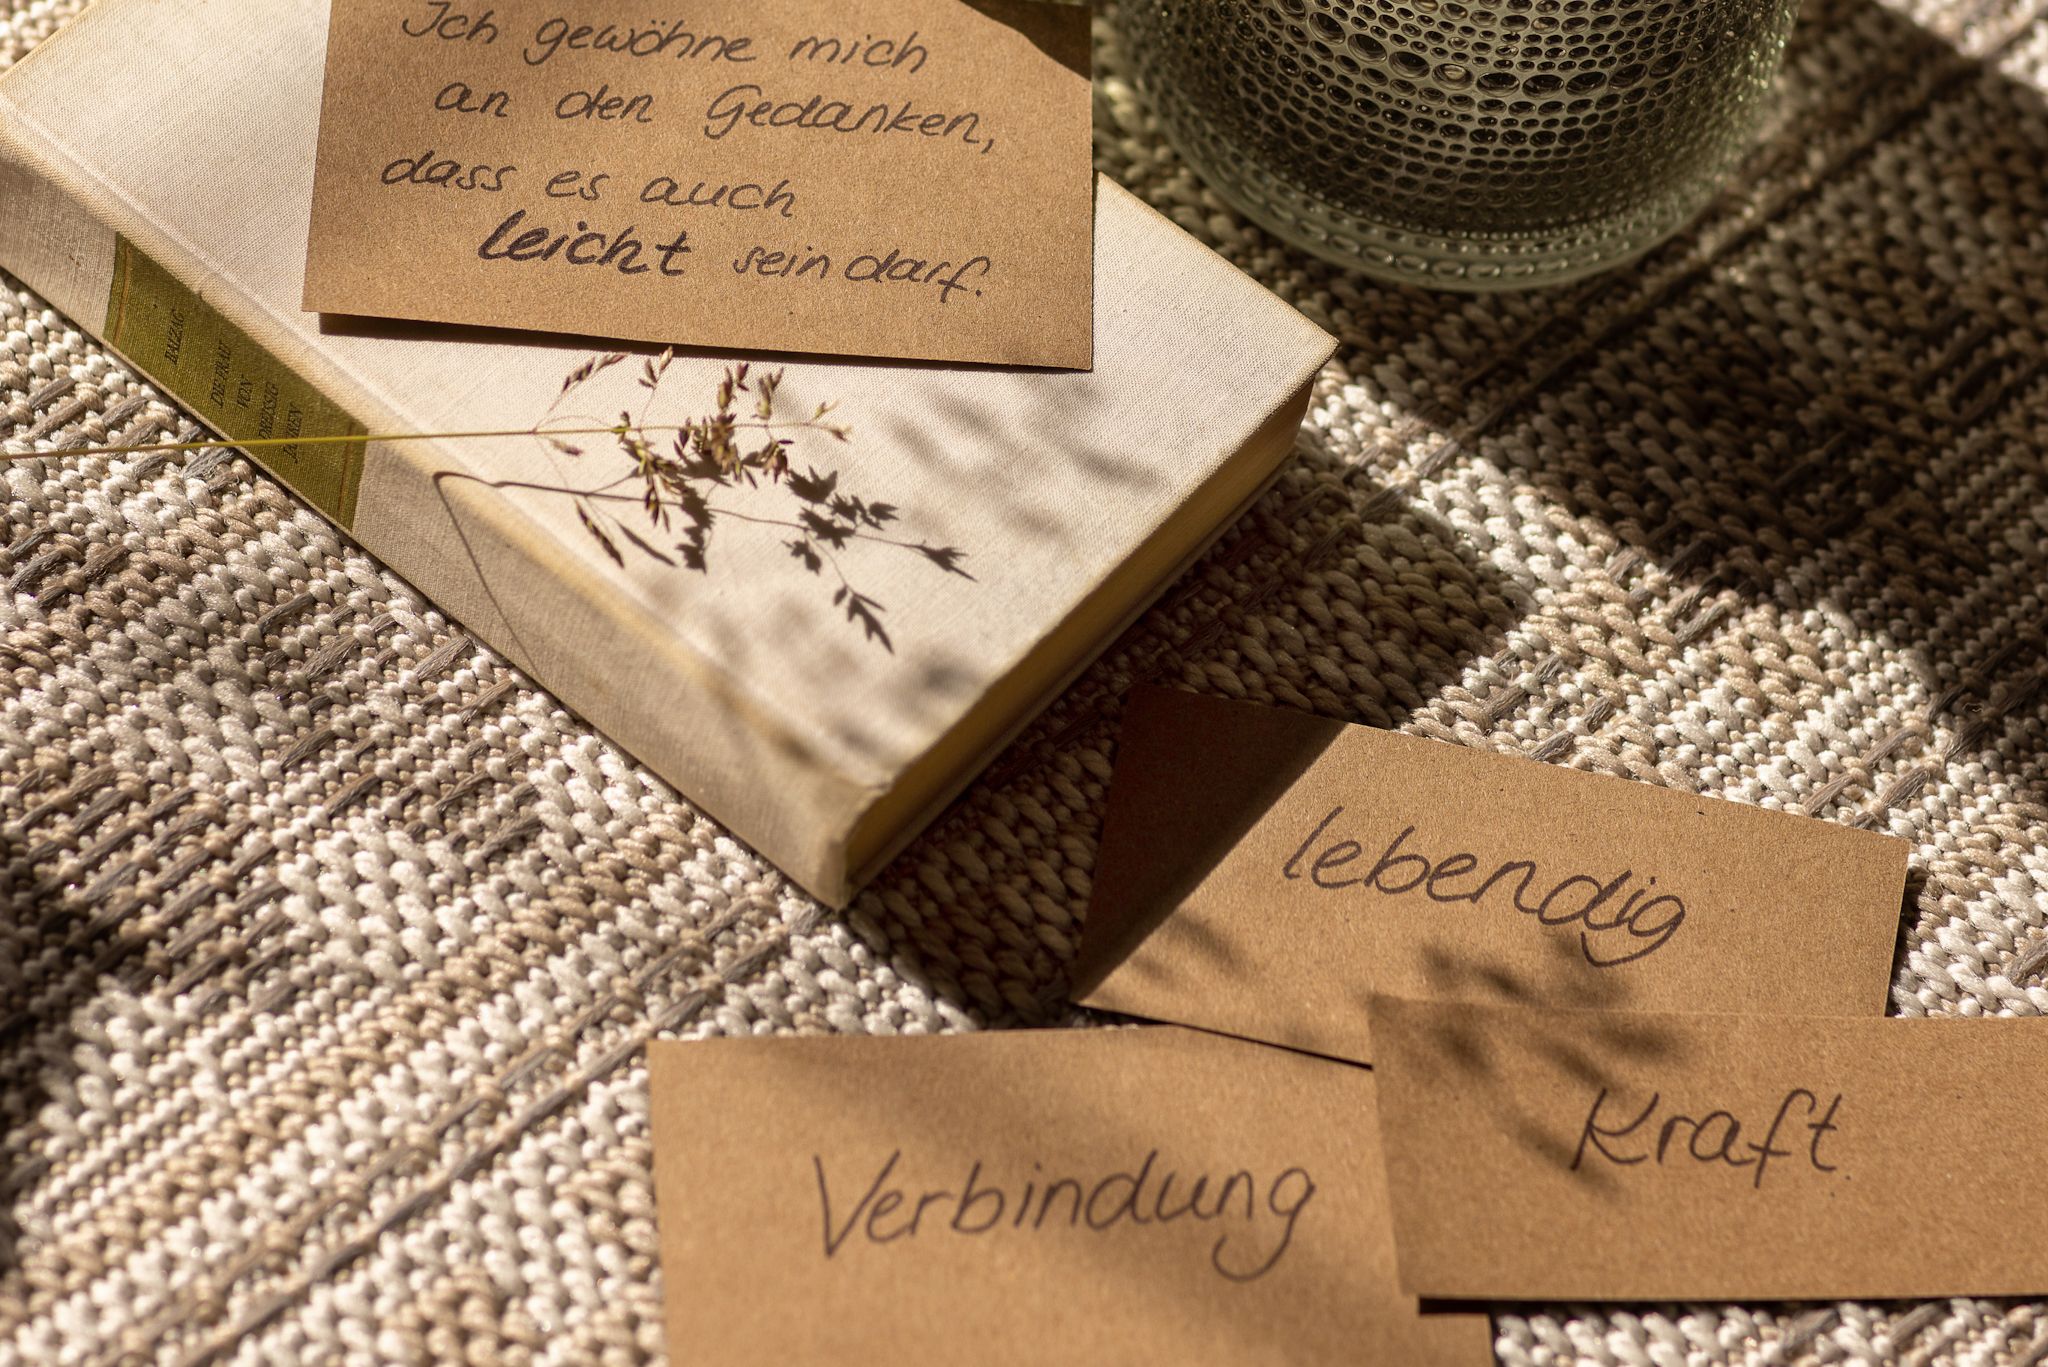 Ich gewöhne mich
an den Gedanken,
dass es auch
leicht sein darf.
BALZAC
DIE FRAU
VON
DREISSIG
JAHREN
lebendig
Kraft
Verbindung